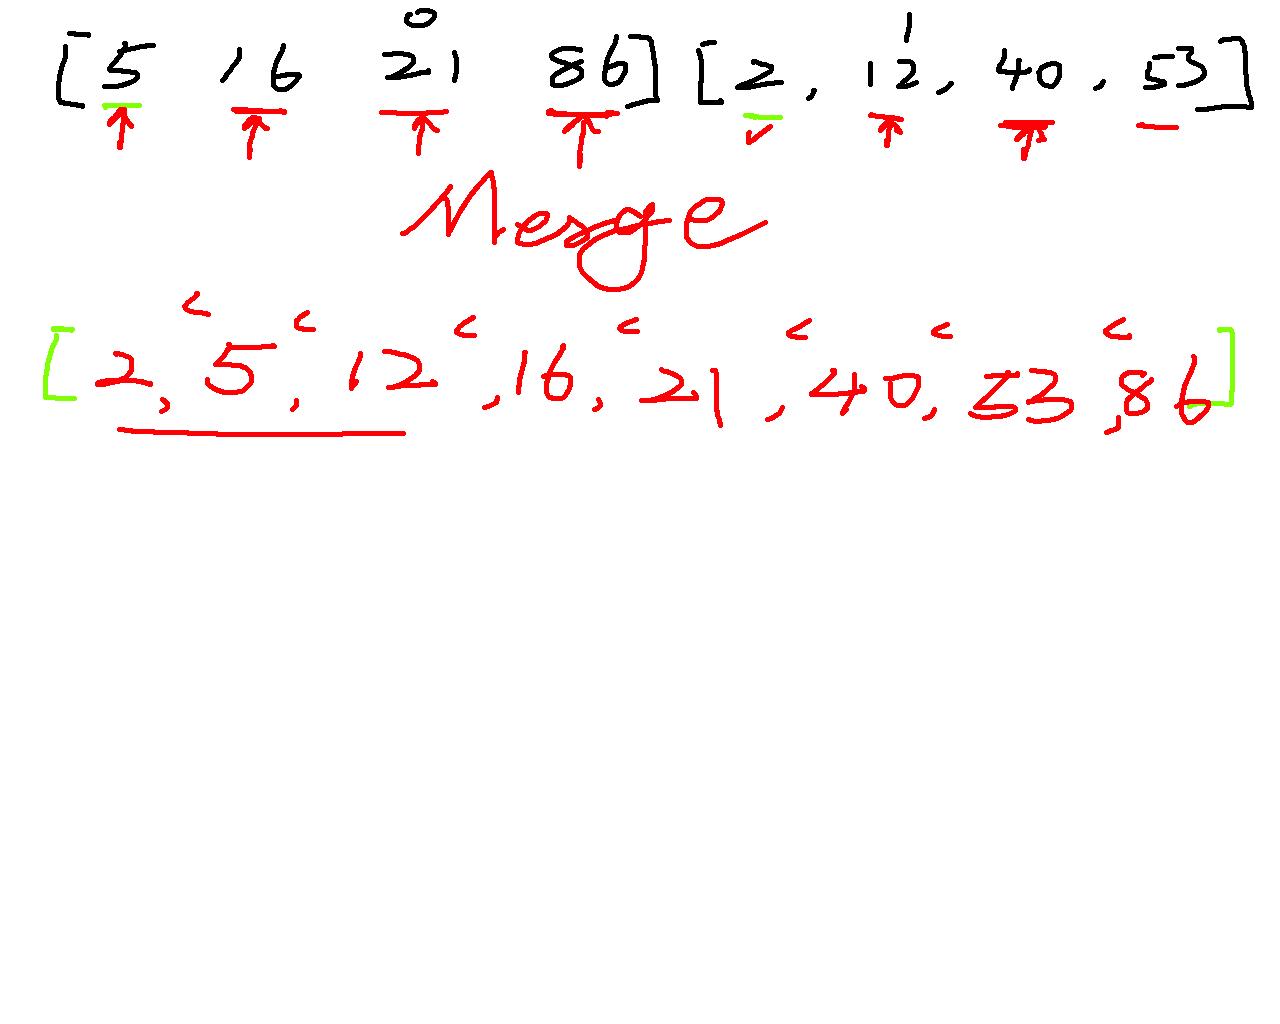 0 1
[5 16 21 86] [2, 12, 40, 53]
Merge
< < < < < < <
[2, 5, 12, 16, 21, 40, 53, 86]